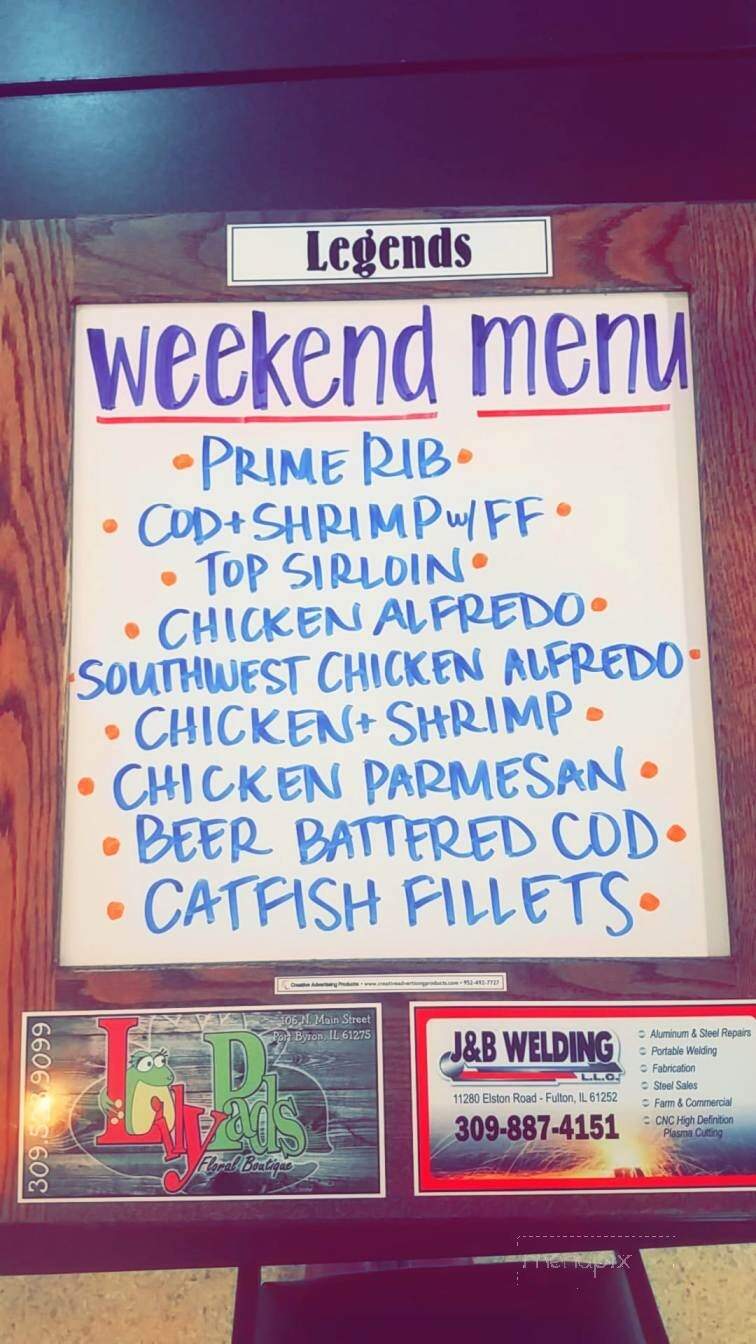 Legends
weekend menu
•PRIME RIB•
• COD+SHRIMP w/FF •
• TOP SIRLOIN •
• CHICKEN ALFREDO •
•SOUTHWEST CHICKEN ALFREDO•
• CHICKEN+ SHRIMP •
• CHICKEN PARMESAN •
• BEER BATTERED COD •
• CATFISH FILLETS •
Creative Advertising Products • www.creativeadvertisingproducts.com • 952-492-7727
106 N. Main Street
Port Byron, IL 61275
Lily Pads
Floral Boutique
J&B WELDING
L.L.C.
11280 Elston Road - Fulton, IL 61252
309-887-4151
Aluminum & Steel Repairs
Portable Welding
Fabrication
Steel Sales
Farm & Commercial
CNC High Definition
Plasma Cutting
menupix